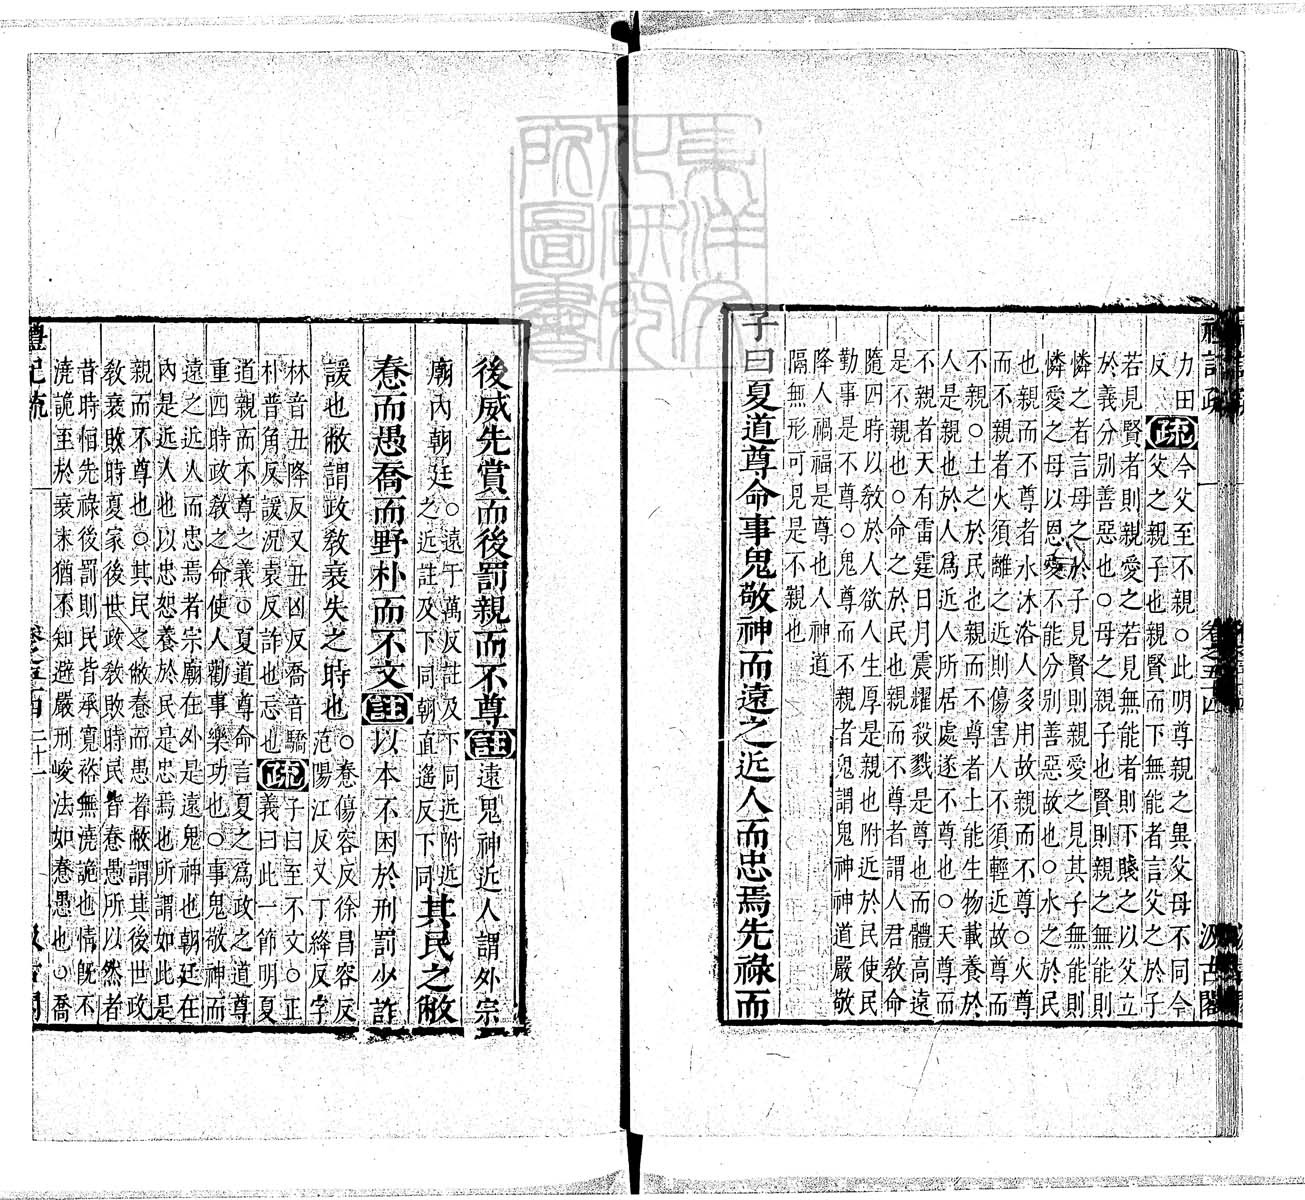 禮記疏 卷之五十四 汲古閣
力田反 疏 今父至不親○此明尊親之異父母不同今
父之親子也親賢而下無能者言父之於子
若見賢者則親愛之若見無能者則下賤之以父立
於義分別善惡也○母之親子也賢則親之無能則
憐之者言母之於子見賢則親愛之見其子無能則
憐愛之母以恩愛不能分別善惡故也○水之於民
也親而不尊者水沐浴人多用故親而不尊○火尊
而不親者火須離之近則傷害人不須輕近故尊而
不親○土之於民也親而不尊者土能生物載養於
人是親也於人人爲近人所居處遂不尊也○天尊而
不親者天有雷霆日月震耀殺戮是尊也而體高遠
是不親也○命之於民也親而不尊者謂人君教命
隨四時以教於人欲人生厚是親也附近於民使民
勤事是不尊○鬼尊而不親者鬼謂鬼神神道嚴敬
降人禍福是尊也人神道
隔無形可見是不親也
子曰夏道尊命事鬼敬神而遠之近人而忠焉先祿而
後威先賞而後罰親而不尊 註 遠鬼神近人謂外宗
廟內朝廷○遠于萬反註及下同近附近之近註及下同朝直遙反下同 其民之敝
惷而愚喬而野朴而不文 註 以本不困於刑罰少詐
諼也敝謂政教衰失之時也○惷傷容反徐昌容反范陽江反又丁絳反字
林音丑降反又丑凶反喬音驕朴普角反諼況袁反詐也忘也 疏 子曰至不文○正
義曰此一節明夏
道親而不尊之義○夏道尊命言夏之爲政之道尊
重四時政教之命使人勸事樂功也○事鬼敬神而
遠之近人而忠焉者宗廟在外是遠鬼神也朝廷在
內是近人也以忠恕養於民是忠焉也所謂如此是
親而不尊也○其民之敝惷而愚者敝謂其後世政
教衰敗時夏家後世政教敗時民皆惷愚所以然者
昔時恒先祿後罰則民皆承寬裕無澆詭也情既不
澆詭至於衰末猶不知避嚴刑峻法如惷愚也○喬
禮記疏 卷之五十四 二十一 汲古閣
東洋文化研究所圖書